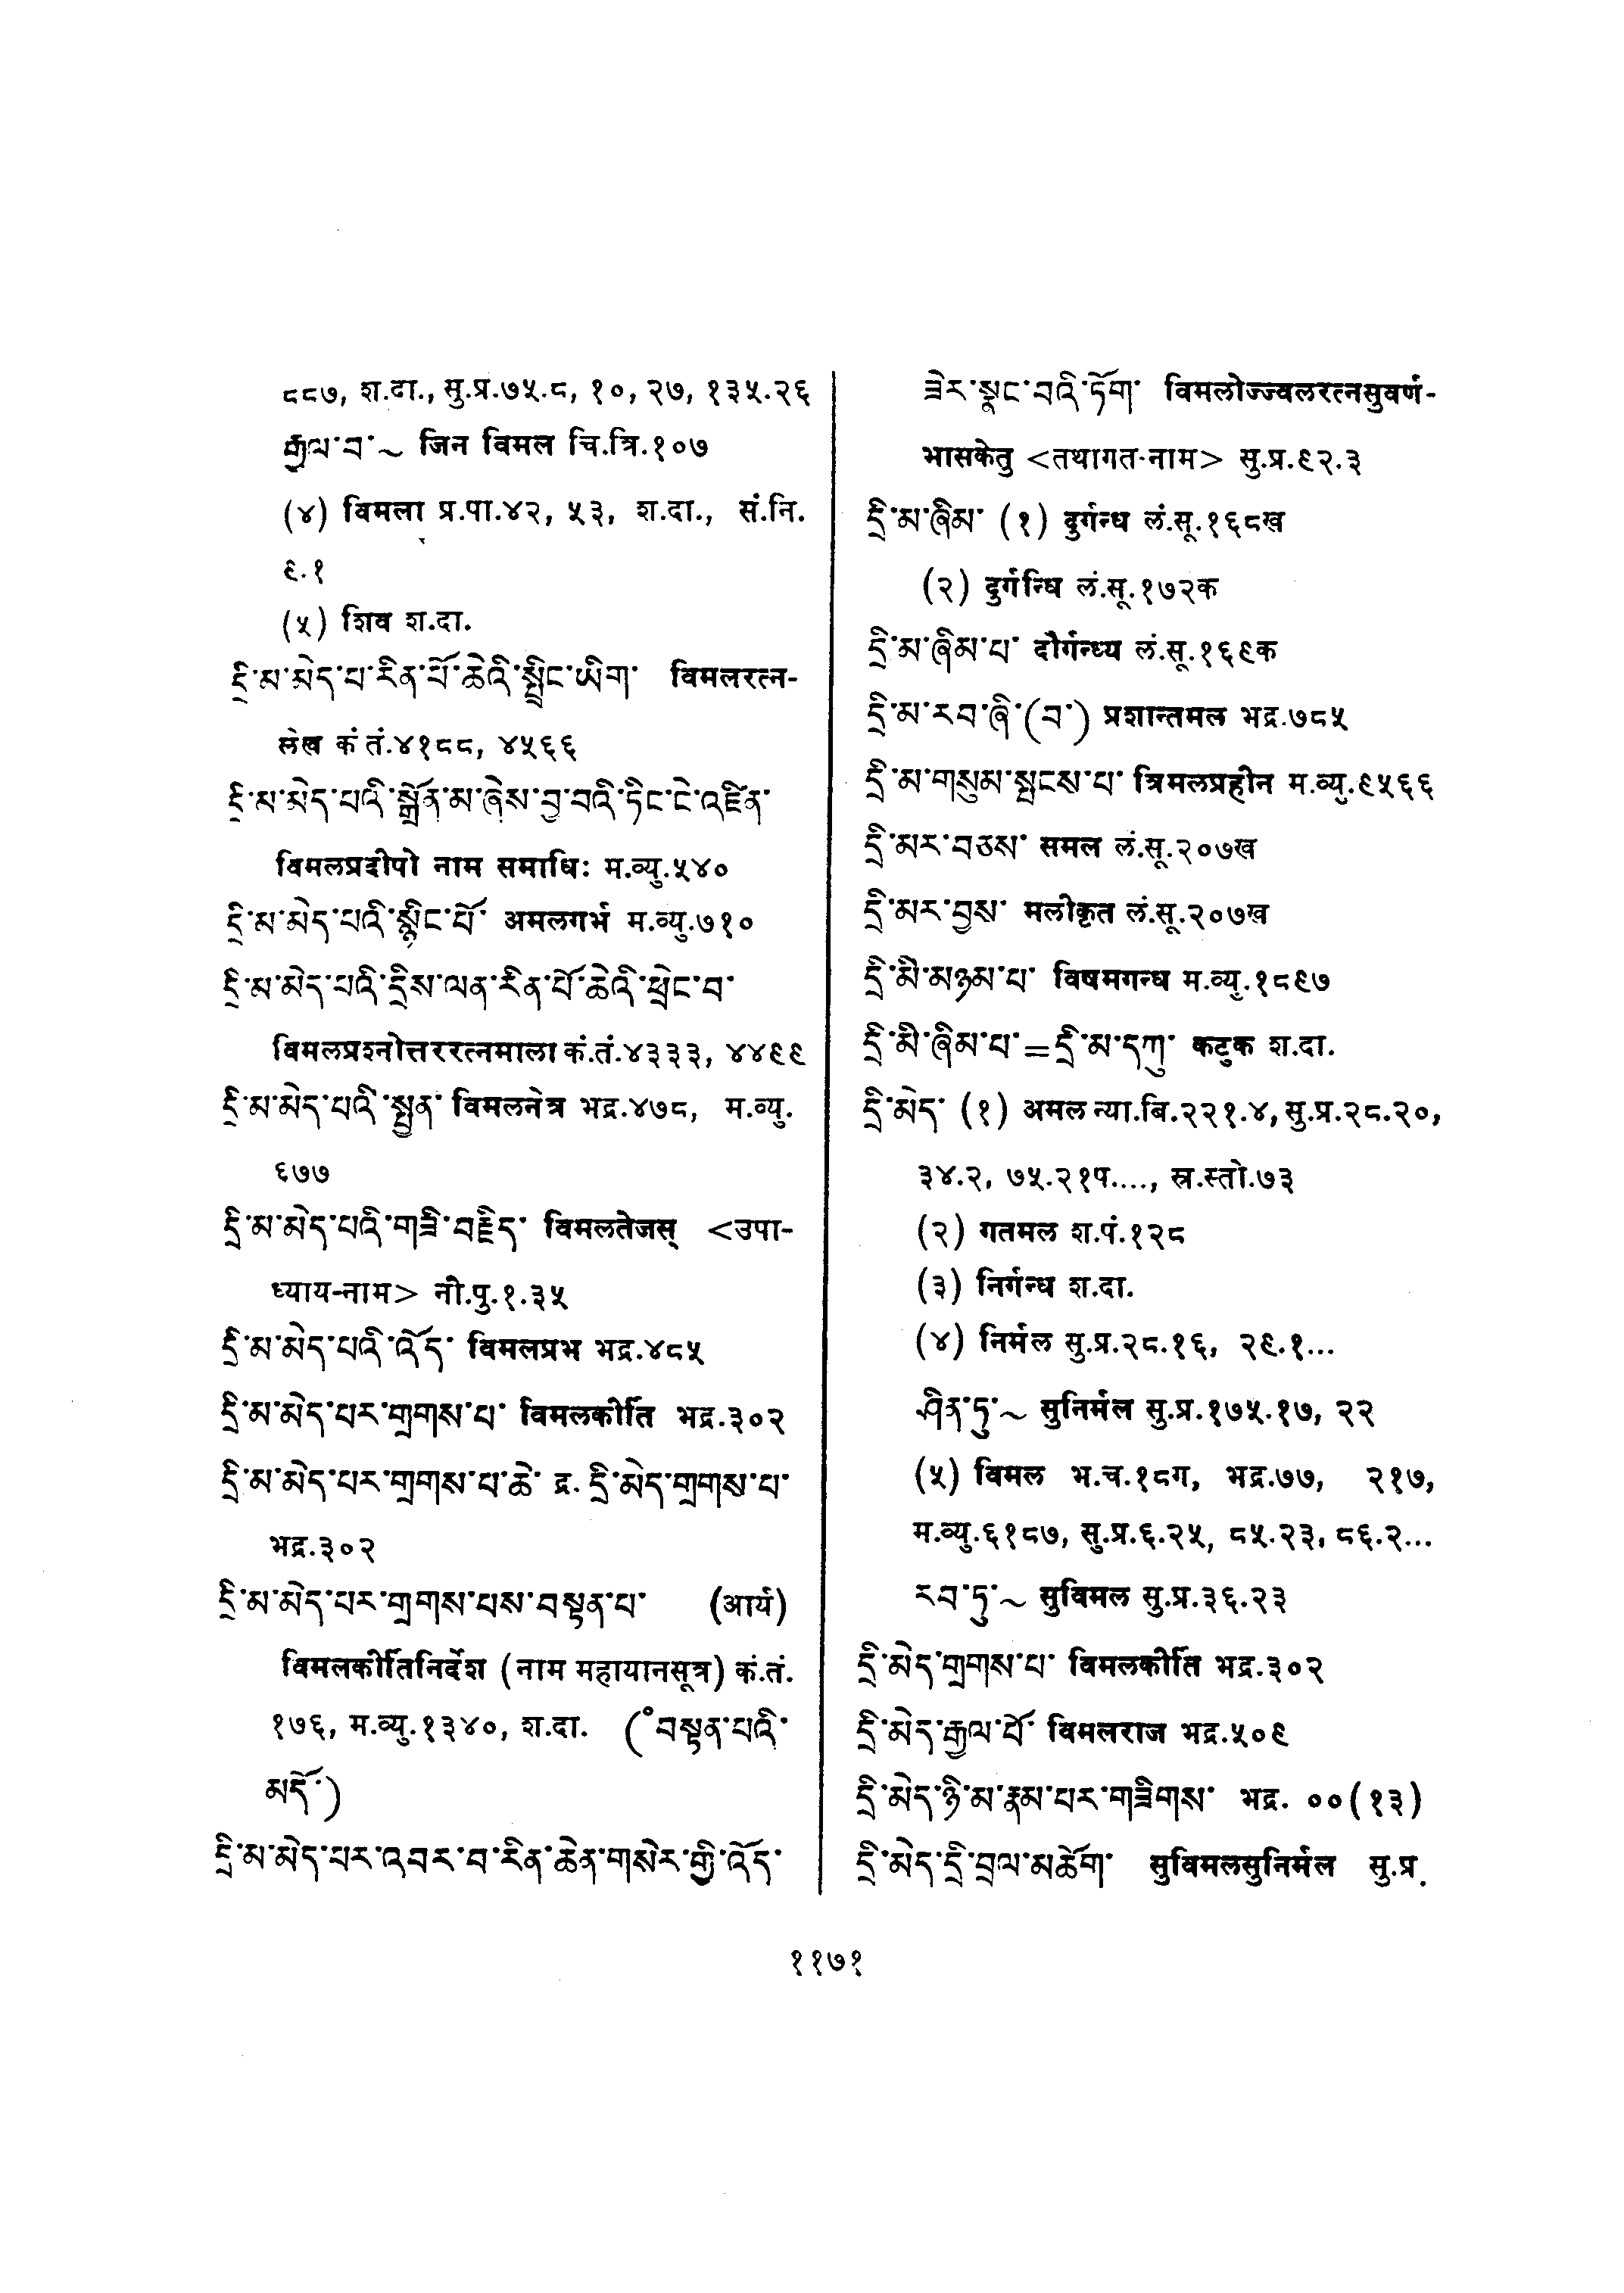 ८८७, श.दा., सु.प्र.७५.८, १०, २७, १३५.२६
རྒྱལ་བ་~ जिन विमल चि.त्रि.१०७
(४) विमला प्र.पा.४२, ५३, श.दा., सं.नि.
९.१
(५) शिव श.दा.
དྲི་མ་མེད་པ་རིན་པོ་ཆེའི་སྤྲིང་ཡིག་ विमलरत्न-
लेख कं तं.४१८८, ४५६६
དྲི་མ་མེད་པའི་སྒྲོན་མ་ཞེས་བྱ་བའི་ཏིང་ངེ་འཛིན་
विमलप्रदीपो नाम समाधिः म.व्यु.५४०
དྲི་མ་མེད་པའི་སྙིང་པོ་ अमलगर्भ म.व्यु.७१०
དྲི་མ་མེད་པའི་དྲིས་ལན་རིན་པོ་ཆེའི་ཕྲེང་བ་
विमलप्रश्नोत्तररत्नमाला कं.तं.४३३३, ४४९९
དྲི་མ་མེད་པའི་སྤྱན་ विमलनेत्र भद्र.४७८, म.व्यु.
६७७
དྲི་མ་མེད་པའི་གཟི་བརྗིད་ विमलतेजस् <उपा-
ध्याय-नाम> नी.पु.१.३५
དྲི་མ་མེད་པའི་འོད་ विमलप्रभ भद्र.४८५
དྲི་མ་མེད་པར་གྲགས་པ་ विमलकीर्ति भद्र.३०२
དྲི་མ་མེད་པར་གྲགས་པ་ཆེ་ द्र. དྲི་མེད་གྲགས་པ་
भद्र.३०२
དྲི་མ་མེད་པར་གྲགས་པས་བསྟན་པ་ (आर्य)
विमलकीर्तिनिर्देश (नाम महायानसूत्र) कं.तं.
१७६, म.व्यु.१३४०, श.दा. (°བསྟན་པའི་
མདོ་)
དྲི་མ་མེད་པར་འབར་བ་རིན་ཆེན་གསེར་གྱི་འོད་
ཟེར་སྣང་བའི་ཏོག་ विमलोज्ज्वलरत्नसुवर्ण-
भासकेतु <तथागत-नाम> सु.प्र.९२.३
དྲི་མ་ཞིམ་ (१) दुर्गन्ध लं.सू.१६८ख
(२) दुर्गन्धि लं.सू.१७२क
དྲི་མ་ཞིམ་པ་ दौर्गन्ध्य लं.सू.१६९क
དྲི་མ་རབ་ཞི་(བ་) प्रशान्तमल भद्र.७८५
དྲི་མ་གསུམ་སྤངས་པ་ त्रिमलप्रहीन म.व्यु.९५६६
དྲི་མར་བཅས་ समल लं.सू.२०७ख
དྲི་མར་བྱས་ मलीकृत लं.सू.२०७ख
དྲི་མི་མཉམ་པ་ विषमगन्ध म.व्यु.१८९७
དྲི་མི་ཞིམ་པ་=དྲི་མ་དཀུ་ कटुक श.दा.
དྲི་མེད་ (१) अमल न्या.बि.२२१.४, सु.प्र.२८.२०,
३४.२, ७५.२१प...., स्र.स्तो.७३
(२) गतमल श.पं.१२८
(३) निर्गन्ध श.दा.
(४) निर्मल सु.प्र.२८.१६, २९.१...
ཤིན་ཏུ་~ सुनिर्मल सु.प्र.१७५.१७, २२
(५) विमल भ.च.१८ग, भद्र.७७, २१७,
म.व्यु.६१८७, सु.प्र.६.२५, ८५.२३, ८६.२...
རབ་ཏུ་~ सुविमल सु.प्र.३६.२३
དྲི་མེད་གྲགས་པ་ विमलकीर्ति भद्र.३०२
དྲི་མེད་རྒྱལ་པོ་ विमलराज भद्र.५०९
དྲི་མེད་ཉི་མ་རྣམ་པར་གཟིགས་ भद्र. ००(१३)
དྲི་མེད་དྲི་བྲལ་མཆོག་ सुविमलसुनिर्मल सु.प्र.
११७१